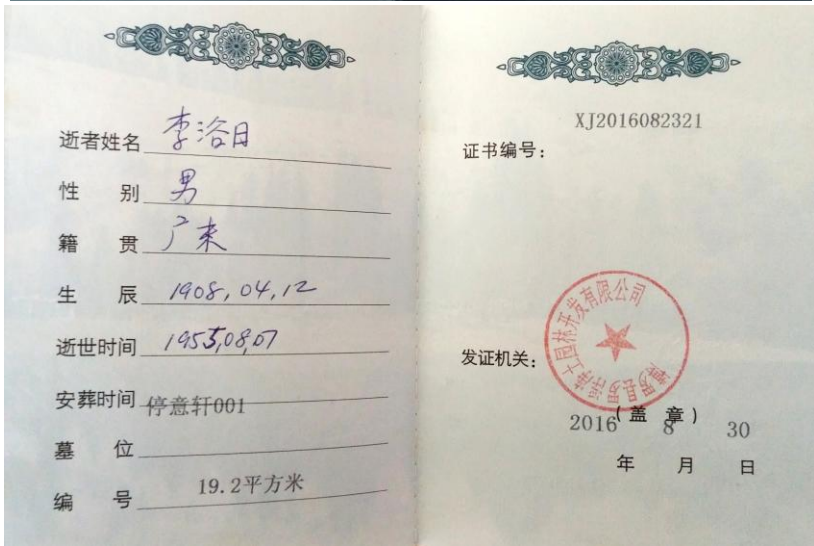 逝者姓名 李浴日
性 别 男
籍 贯 广东
生 辰 1908,04,12
逝世时间 1955,08,07
安葬时间 停意轩001
墓 位
编 号 19.2平方米
XJ2016082321
证书编号：
园林开发有限公司
发证机关：
(盖 章)
2016 8 30
年 月 日